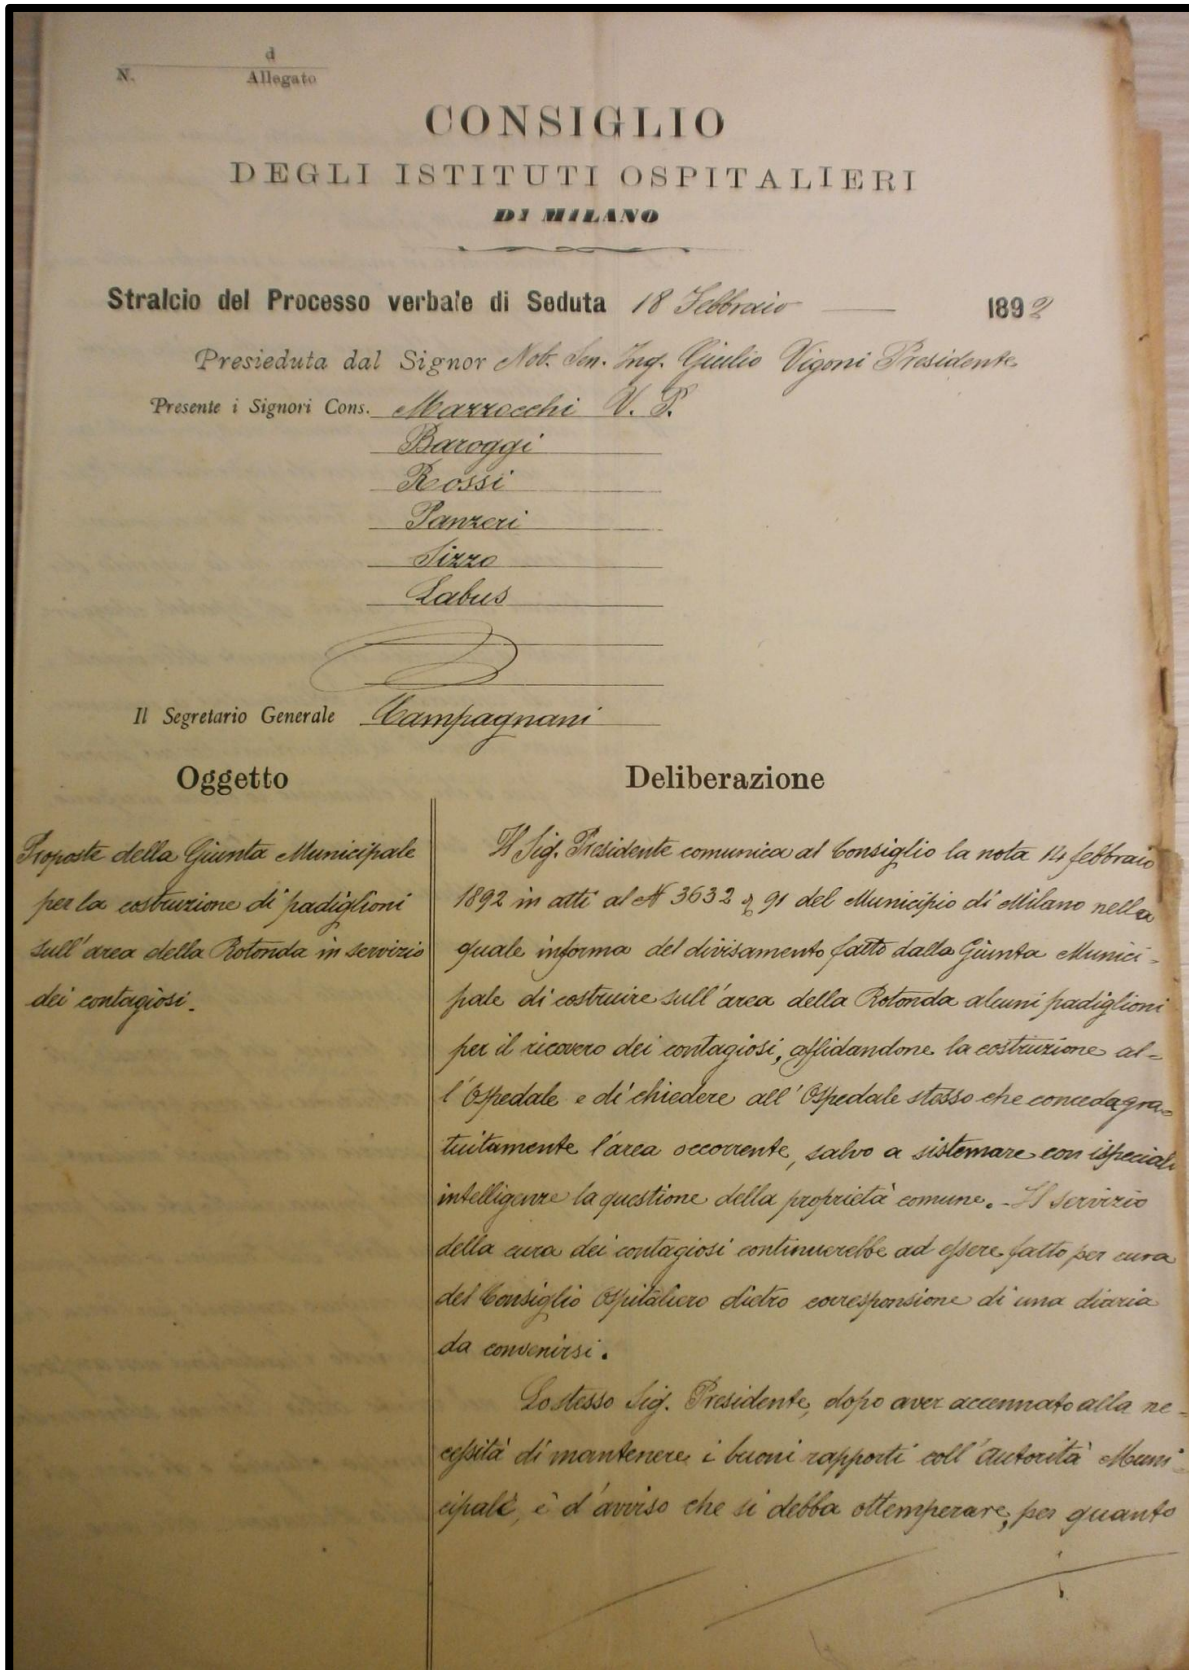 d
N. Allegato
CONSIGLIO
DEGLI ISTITUTI OSPITALIERI
DI MILANO
Stralcio del Processo verbale di Seduta 18 Febbraio 1892
Presieduta dal Signor Nob. Sen. Ing. Giulio Vigoni Presidente
Presente i Signori Cons. Mazzocchi V. P.
Baroggi
Rossi
Panzeri
Sizzo
Labus
Il Segretario Generale Campagnani
Oggetto
Proposte della Giunta Municipale
per la costruzione di padiglioni
sull'area della Rotonda in servizio
dei contagiosi.
Deliberazione
Il Sig. Presidente comunica al Consiglio la nota 14 febbraio
1892 in atti al N 3632 91 del Municipio di Milano nella
quale informa del divisamento fatto dalla Giunta Munici-
pale di costruire sull'area della Rotonda alcuni padiglioni
per il ricovero dei contagiosi, affidandone la costruzione al-
l'Ospedale e di chiedere all'Ospedale stesso che conceda gra-
tuitamente l'area occorrente, salvo a sistemare con ispeciali
intelligenze la questione della proprietà comune. - Il servizio
della cura dei contagiosi continuerebbe ad essere fatto per cura
del Consiglio Ospitaliero dietro corresponsione di una diaria
da convenirsi.
Lo stesso Sig. Presidente, dopo aver accennato alla ne-
cessità di mantenere i buoni rapporti coll'autorità Muni-
cipale, è d'avviso che si debba ottemperare, per quanto